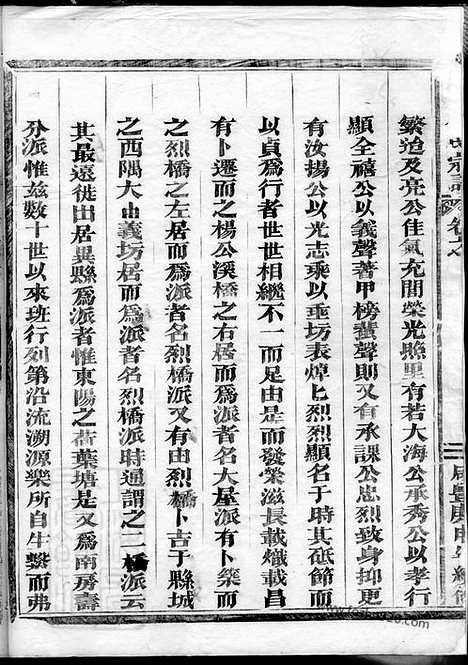 繁迨及亮公佳氣充閭榮光照里有若大海公承秀公以孝行
顯全禧公以義聲著甲榜蜚聲則又有承課公忠烈致身抑更
有汝揚公以光志乘以垂坊表焯匕烈烈顯名于時其砥節而
以貞爲行者世世相繼不一而足由是而發榮滋長載熾載昌
有卜遷而之楊公溪橋之右居而爲派者名大屋派有卜築而
之烈橋之左居而爲派者名烈橋派又有由烈橋卜吉于縣城
之西隅大山義坊居而爲派者名烈橋派時通謂之二橋派云
其最遠徙出居異縣爲派者惟東陽之荷葉塘是又爲南房壽
分派惟茲數十世以來班行列第沿流溯源樂所自生繫而弗